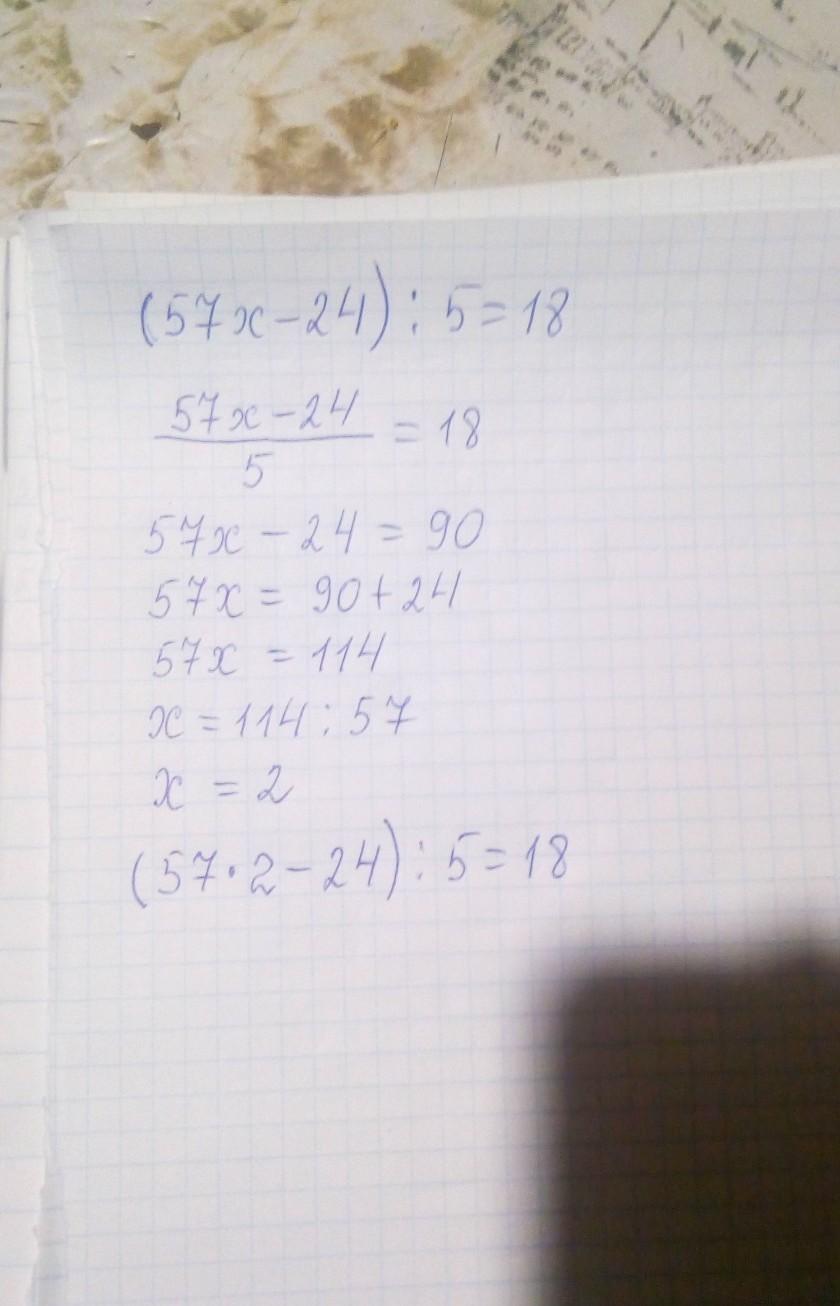 (57x-24):5=18
57x-24
5
=18
57x-24=90
57x=90+24
57x=114
x=114:57
x=2
(57·2-24):5=18